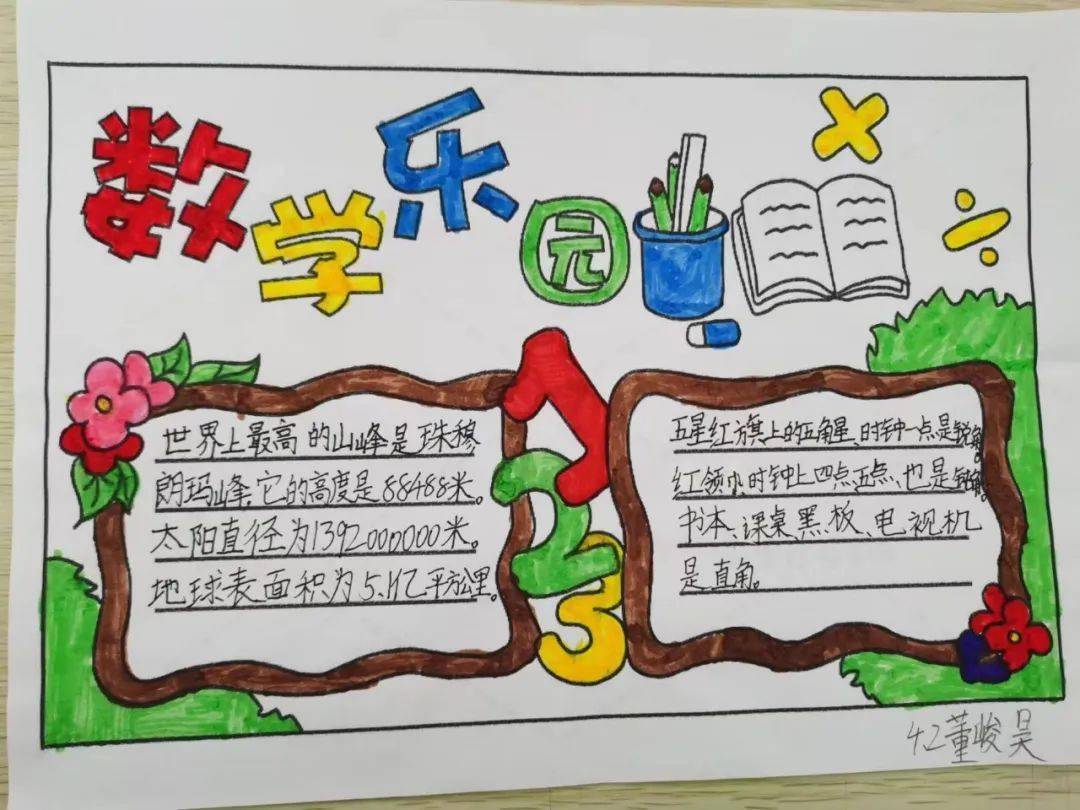 数学乐园
世界上最高的山峰是珠穆
朗玛峰,它的高度是88488米。
太阳直径为1392000000米。
地球表面积为5.1亿平方公里。
1
2
3
五星红旗上的五角星、时钟一点是锐角。
红领巾、时钟上四点五点、也是钝角。
书本、课桌黑板、电视机
是直角。
42董峻昊